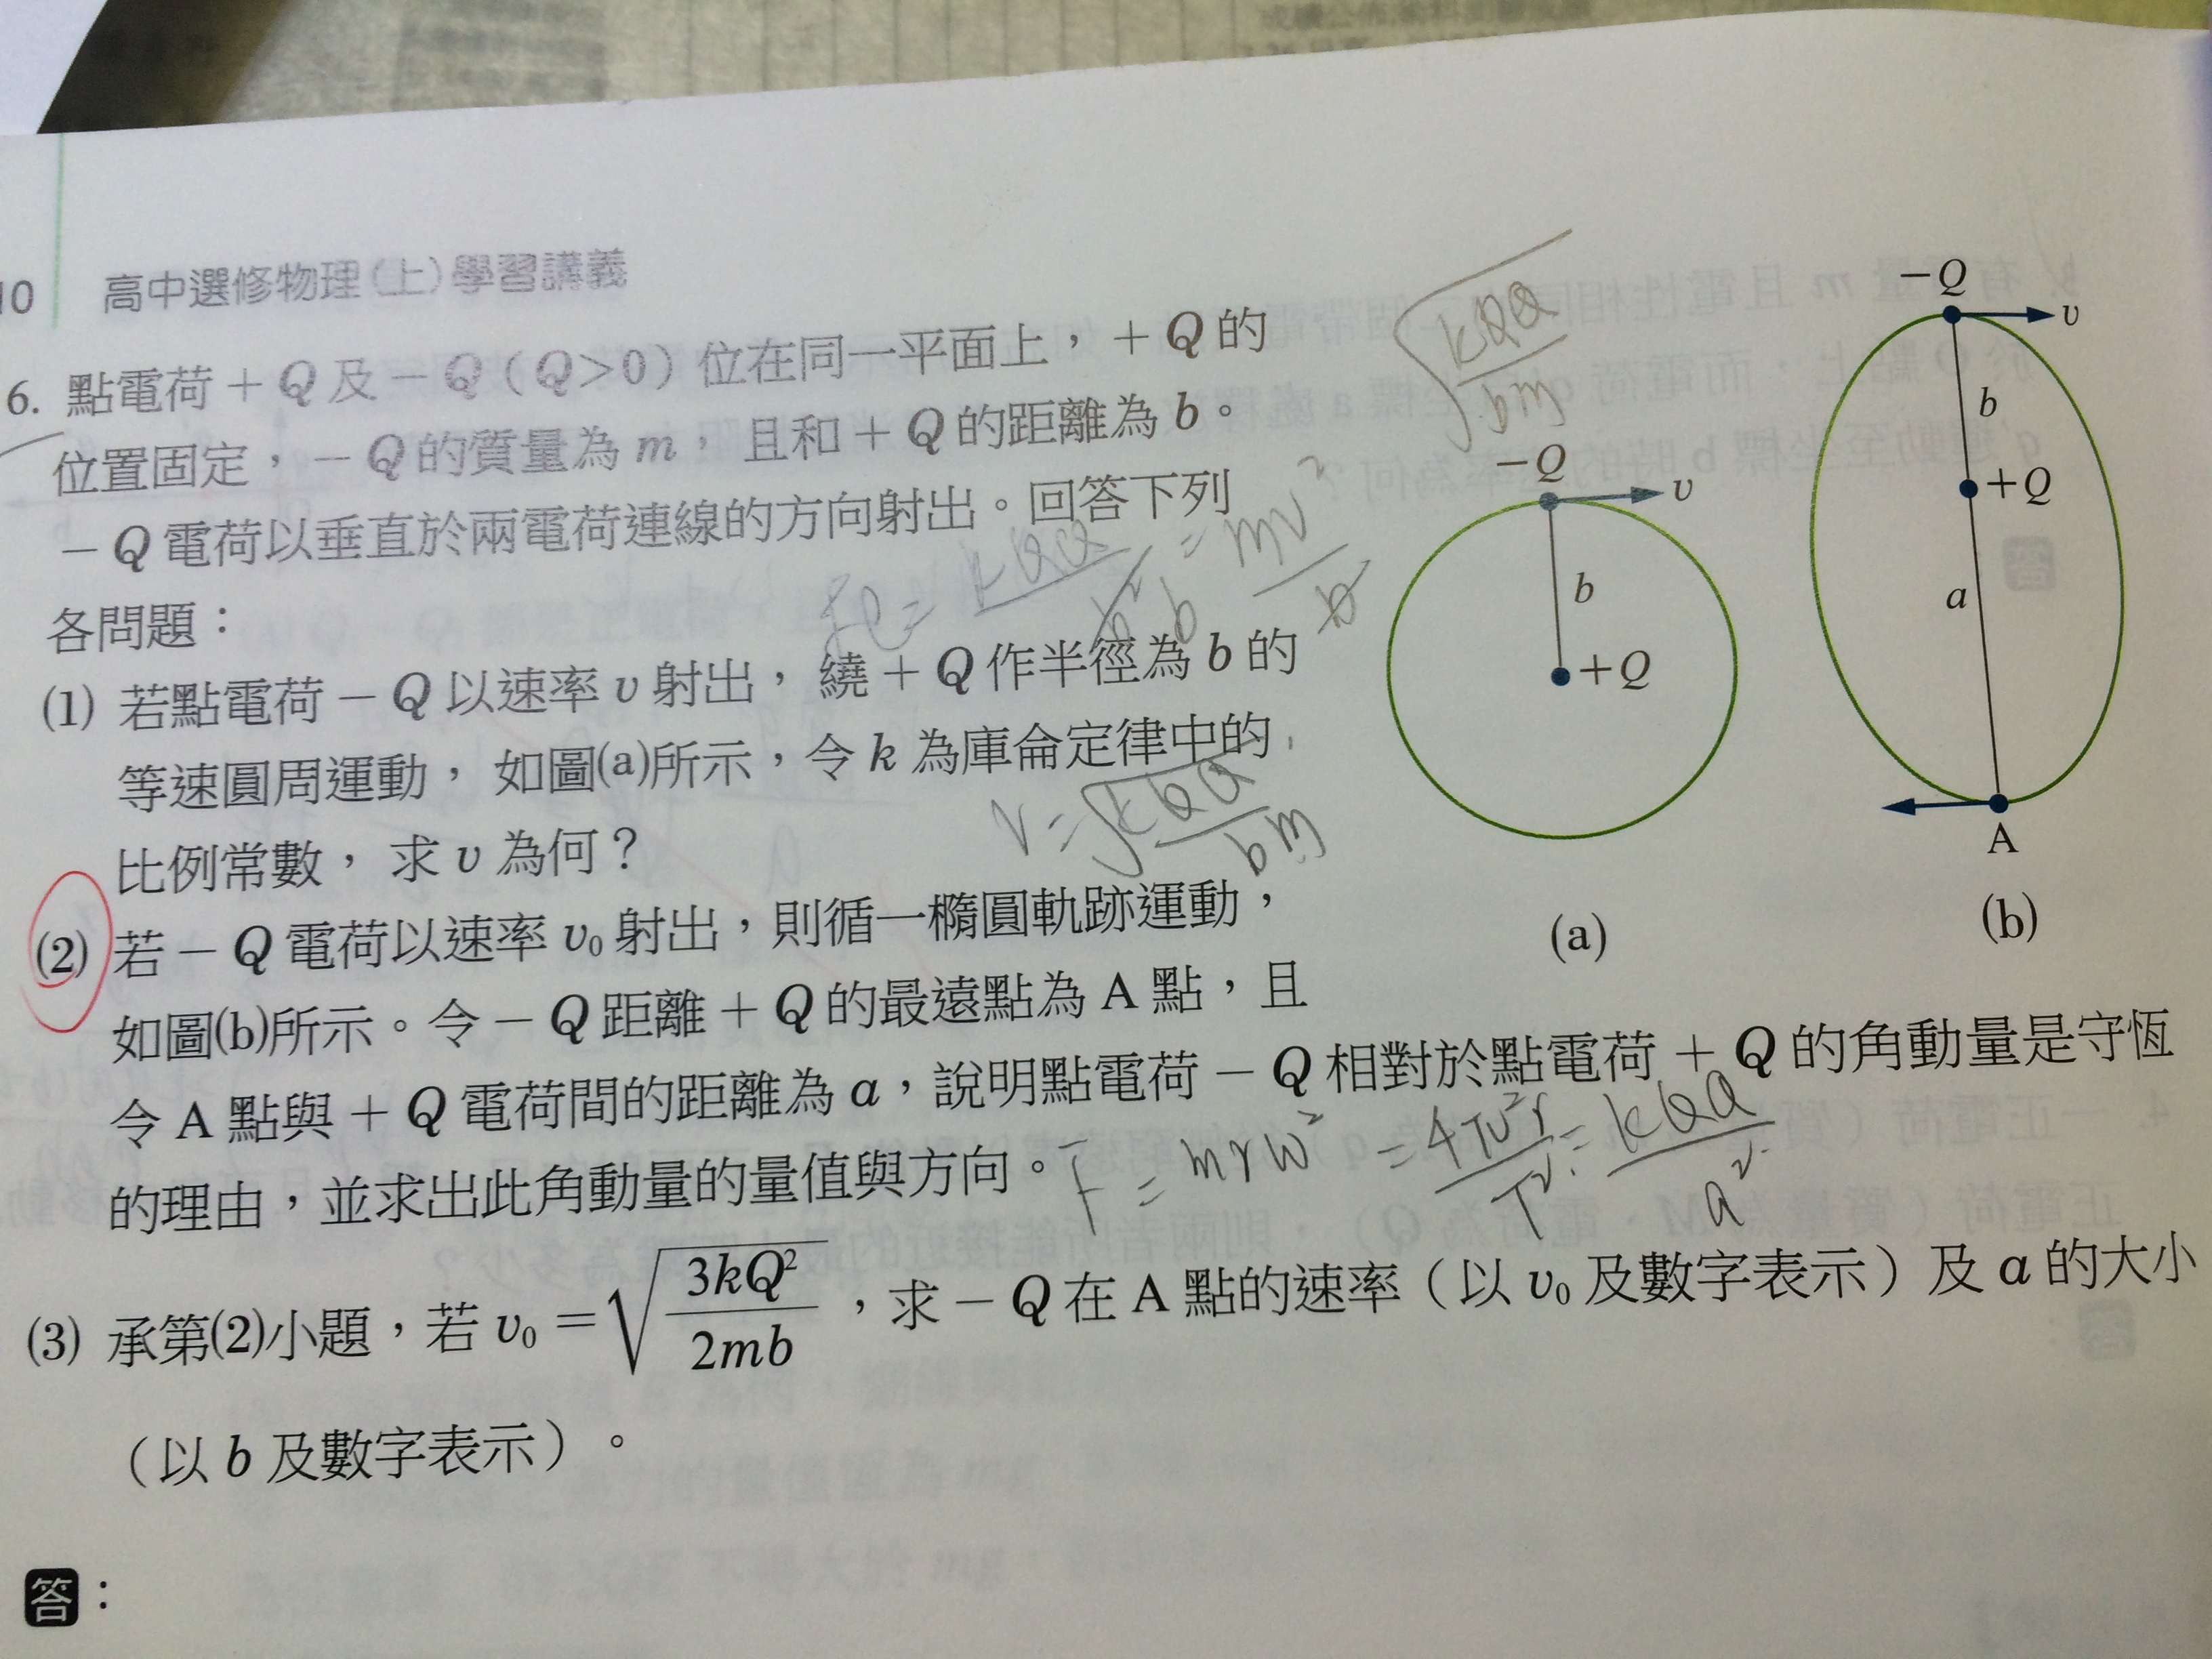 10 高中選修物理(上)學習講義
6. 點電荷+Q及-Q(Q>0)位在同一平面上,+Q的
位置固定,-Q的質量為m, 且和+Q的距離為b。
-Q電荷以垂直於兩電荷連線的方向射出。回答下列
各問題:
(1) 若點電荷-Q以速率v射出, 繞+Q作半徑為b的
等速圓周運動, 如圖(a)所示,令k為庫侖定律中的
比例常數, 求v為何?
(2) 若-Q電荷以速率v₀射出,則循一橢圓軌跡運動,
如圖(b)所示。令-Q距離+Q的最遠點為A點,且
令A點與+Q電荷間的距離為a,說明點電荷-Q相對於點電荷+Q的角動量是守恆
的理由,並求出此角動量的量值與方向。
(3) 承第(2)小題,若v₀=√(3kQ²/2mb),求-Q在A點的速率(以v₀及數字表示)及a的大小
(以b及數字表示)。
答:
-Q
v
b
+Q
(a)
-Q
v
b
+Q
a
A
(b)
√(kQQ/bm)
Fe = kQQ/b² = mv²/b
v = √(kQQ/bm)
F = mrω² = 4π²r/T² = kQQ/a²